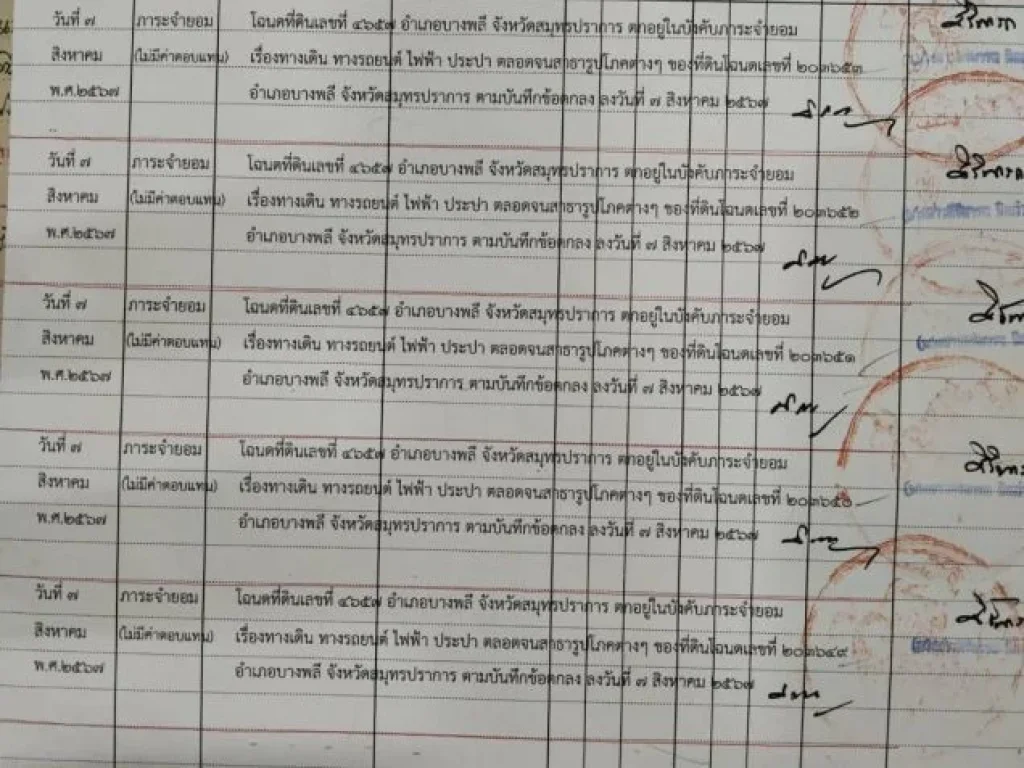 วันที่ ๗ ภาระจำยอม โฉนดที่ดินเลขที่ ๔๖๕๗ อำเภอบางพลี จังหวัดสมุทรปราการ ตกอยู่ในบังคับภาระจำยอม
สิงหาคม (ไม่มีค่าตอบแทน) เรื่องทางเดิน ทางรถยนต์ ไฟฟ้า ประปา ตลอดจนสาธารูปโภคต่างๆ ของที่ดินโฉนดเลขที่ ๒๐๓๖๕๓
พ.ศ.๒๕๖๗ อำเภอบางพลี จังหวัดสมุทรปราการ ตามบันทึกข้อตกลง ลงวันที่ ๗ สิงหาคม ๒๕๖๗
วันที่ ๗ ภาระจำยอม โฉนดที่ดินเลขที่ ๔๖๕๗ อำเภอบางพลี จังหวัดสมุทรปราการ ตกอยู่ในบังคับภาระจำยอม
สิงหาคม (ไม่มีค่าตอบแทน) เรื่องทางเดิน ทางรถยนต์ ไฟฟ้า ประปา ตลอดจนสาธารูปโภคต่างๆ ของที่ดินโฉนดเลขที่ ๒๐๓๖๕๒
พ.ศ.๒๕๖๗ อำเภอบางพลี จังหวัดสมุทรปราการ ตามบันทึกข้อตกลง ลงวันที่ ๗ สิงหาคม ๒๕๖๗
วันที่ ๗ ภาระจำยอม โฉนดที่ดินเลขที่ ๔๖๕๗ อำเภอบางพลี จังหวัดสมุทรปราการ ตกอยู่ในบังคับภาระจำยอม
สิงหาคม (ไม่มีค่าตอบแทน) เรื่องทางเดิน ทางรถยนต์ ไฟฟ้า ประปา ตลอดจนสาธารูปโภคต่างๆ ของที่ดินโฉนดเลขที่ ๒๐๓๖๕๑
พ.ศ.๒๕๖๗ อำเภอบางพลี จังหวัดสมุทรปราการ ตามบันทึกข้อตกลง ลงวันที่ ๗ สิงหาคม ๒๕๖๗
วันที่ ๗ ภาระจำยอม โฉนดที่ดินเลขที่ ๔๖๕๗ อำเภอบางพลี จังหวัดสมุทรปราการ ตกอยู่ในบังคับภาระจำยอม
สิงหาคม (ไม่มีค่าตอบแทน) เรื่องทางเดิน ทางรถยนต์ ไฟฟ้า ประปา ตลอดจนสาธารูปโภคต่างๆ ของที่ดินโฉนดเลขที่ ๒๐๓๖๕๐
พ.ศ.๒๕๖๗ อำเภอบางพลี จังหวัดสมุทรปราการ ตามบันทึกข้อตกลง ลงวันที่ ๗ สิงหาคม ๒๕๖๗
วันที่ ๗ ภาระจำยอม โฉนดที่ดินเลขที่ ๔๖๕๗ อำเภอบางพลี จังหวัดสมุทรปราการ ตกอยู่ในบังคับภาระจำยอม
สิงหาคม (ไม่มีค่าตอบแทน) เรื่องทางเดิน ทางรถยนต์ ไฟฟ้า ประปา ตลอดจนสาธารูปโภคต่างๆ ของที่ดินโฉนดเลขที่ ๒๐๓๖๔๙
พ.ศ.๒๕๖๗ อำเภอบางพลี จังหวัดสมุทรปราการ ตามบันทึกข้อตกลง ลงวันที่ ๗ สิงหาคม ๒๕๖๗